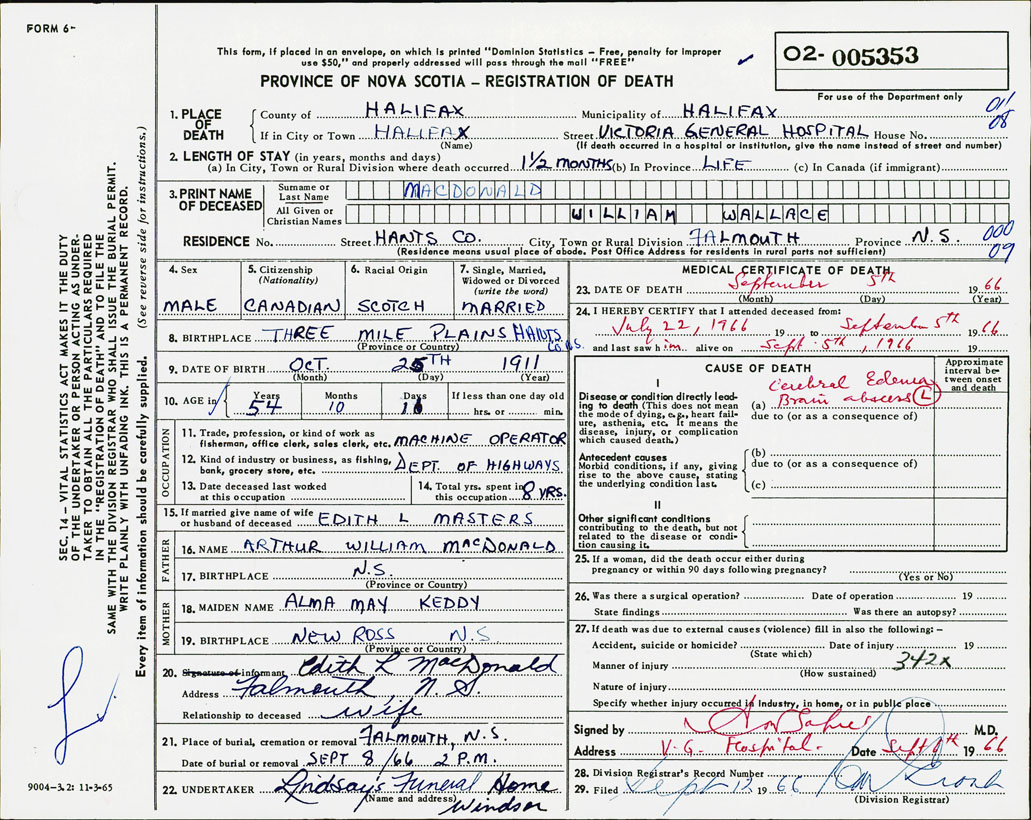 FORM 6-
This form, if placed in an envelope, on which is printed "Dominion Statistics - Free, penalty for improper
use $50," and properly addressed will pass through the mail "FREE"
PROVINCE OF NOVA SCOTIA - REGISTRATION OF DEATH
O2- 005353
For use of the Department only
1. PLACE OF DEATH
County of HALIFAX Municipality of HALIFAX
If in City or Town HALIFAX Street VICTORIA GENERAL HOSPITAL House No.
(Name) (If death occurred in a hospital or institution, give the name instead of street and number)
08
2. LENGTH OF STAY (in years, months and days)
(a) In City, Town or Rural Division where death occurred 1 1/2 MONTHS (b) In Province LIFE (c) In Canada (if immigrant)
3. PRINT NAME OF DECEASED
Surname or Last Name MACDONALD
All Given or Christian Names WILLIAM WALLACE
RESIDENCE No. Street HANTS CO. City, Town or Rural Division FALMOUTH Province N.S.
(Residence means usual place of abode. Post Office Address for residents in rural parts not sufficient)
000
09
4. Sex
MALE
5. Citizenship
(Nationality)
CANADIAN
6. Racial Origin
SCOTCH
7. Single, Married,
Widowed or Divorced
(write the word)
MARRIED
8. BIRTHPLACE THREE MILE PLAINS HANTS
(Province or Country) CO. N.S.
9. DATE OF BIRTH OCT. 25TH 1911
(Month) (Day) (Year)
10. AGE in Years Months Days If less than one day old
54 10 11 hrs. or min.
OCCUPATION
11. Trade, profession, or kind of work as
fisherman, office clerk, sales clerk, etc. MACHINE OPERATOR
12. Kind of industry or business, as fishing,
bank, grocery store, etc. DEPT. OF HIGHWAYS
13. Date deceased last worked
at this occupation
14. Total yrs. spent in
this occupation 8 YRS.
15. If married give name of wife
or husband of deceased EDITH L MASTERS
FATHER
16. NAME ARTHUR WILLIAM MACDONALD
17. BIRTHPLACE N.S.
(Province or Country)
MOTHER
18. MAIDEN NAME ALMA MAY KEDDY
19. BIRTHPLACE NEW ROSS N.S
(Province or Country)
20. Signature of informant Edith L MacDonald
Address Falmouth, N.S.
Relationship to deceased wife
21. Place of burial, cremation or removal FALMOUTH, N.S.
Date of burial or removal SEPT 8/66 2 P.M.
22. UNDERTAKER Lindsay's Funeral Home
(Name and address) Windsor
MEDICAL CERTIFICATE OF DEATH
23. DATE OF DEATH September 5th 1966
(Month) (Day) (Year)
24. I HEREBY CERTIFY that I attended deceased from:
July 22, 1966 19 to September 5th 1966
and last saw him alive on Sept. 5th, 1966 19
CAUSE OF DEATH
Approximate
interval be-
tween onset
and death
I
Disease or condition directly lead-
ing to death (This does not mean
the mode of dying, e.g., heart fail-
ure, asthenia, etc. It means the
disease, injury, or complication
which caused death.)
Cerebral Edema
(a) Brain abscess (L)
due to (or as a consequence of)
Antecedent causes
Morbid conditions, if any, giving
rise to the above cause, stating
the underlying condition last.
(b)
due to (or as a consequence of)
(c)
II
Other significant conditions
contributing to the death, but not
related to the disease or condi-
tion causing it.
25. If a woman, did the death occur either during
pregnancy or within 90 days following pregnancy?
(Yes or No)
26. Was there a surgical operation? Date of operation 19
State findings Was there an autopsy?
27. If death was due to external causes (violence) fill in also the following: -
Accident, suicide or homicide? Date of injury 19
(State which)
Manner of injury 342x
(How sustained)
Nature of injury
Specify whether injury occurred in industry, in home, or in public place
Signed by M.D.
Address V.G. Hospital. Date Sept 6th 1966
28. Division Registrar's Record Number
29. Filed Sept 12 1966
(Division Registrar)
SEC. 14 - VITAL STATISTICS ACT MAKES IT THE DUTY
OF THE UNDERTAKER OR PERSON ACTING AS UNDER-
TAKER TO OBTAIN ALL THE PARTICULARS REQUIRED
IN THE "REGISTRATION OF DEATH" AND TO FILE THE
SAME WITH THE DIVISION REGISTRAR WHO SHALL ISSUE THE BURIAL PERMIT.
WRITE PLAINLY WITH UNFADING INK. THIS IS A PERMANENT RECORD.
Every item of information should be carefully supplied. (See reverse side for instructions.)
9004-3.2: 11-3-65